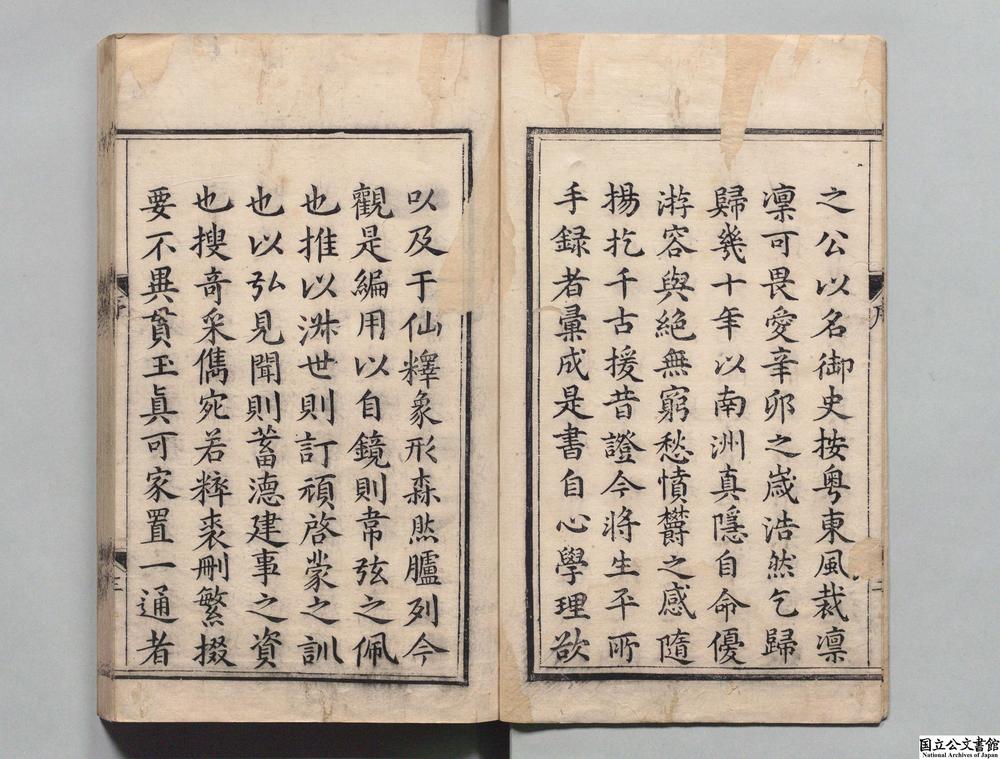 之公以名御史按粤東風裁凛
凛可畏愛辛卯之歳浩然乞歸
歸幾十年以南洲真隱自命優
游容與絶無窮愁憤欝之感隨
揚扢千古援昔證今將生平所
手録者彙成是書自心學理欲
以及于仙釋象形森然臚列今
觀是編用以自鏡則韋弦之佩
也推以淑世則訂頑啓蒙之訓
也以弘見聞則蓄德建事之資
也搜奇采儁宛若粹裘刪繁掇
要不異貧玉眞可家置一通者
序
二
三
国立公文書館
National Archives of Japan